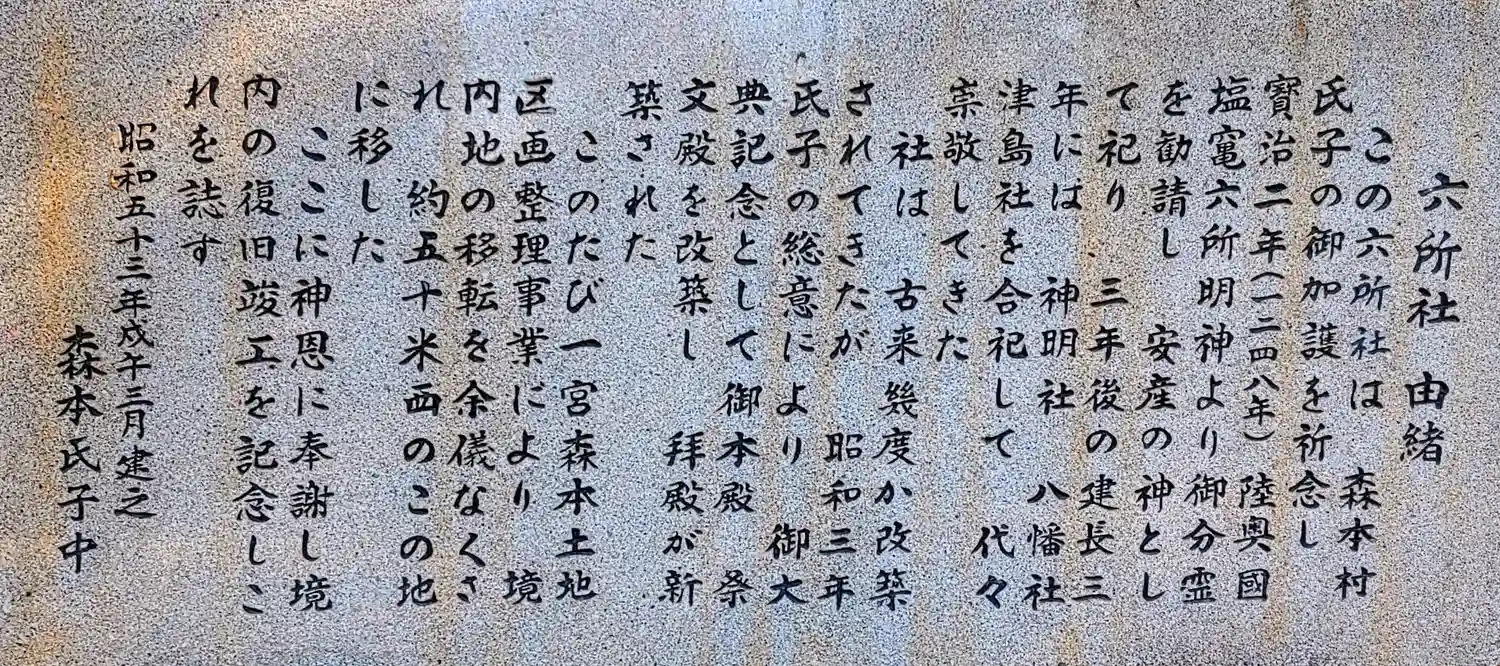 六所社 由緒
この六所社は 森本村
氏子の御加護を祈念し
寳治二年(一二四八年) 陸奥國
塩竃六所明神より御分霊
を勧請し 安産の神とし
て祀り 三年後の建長三
年には 神明社 八幡社
津島社を合祀して 代々
崇敬してきた
社は 古来幾度か改築
されてきたが 昭和三年
氏子の総意により 御大
典記念として御本殿 祭
文殿を改築し 拝殿が新
築された
このたび一宮森本土地
区画整理事業により 境
内地の移転を余儀なくさ
れ 約五十米西のこの地
に移した
ここに神恩に奉謝し境
内の復旧竣工を記念しこ
れを誌す
昭和五十三年戊午三月建之
森本氏子中